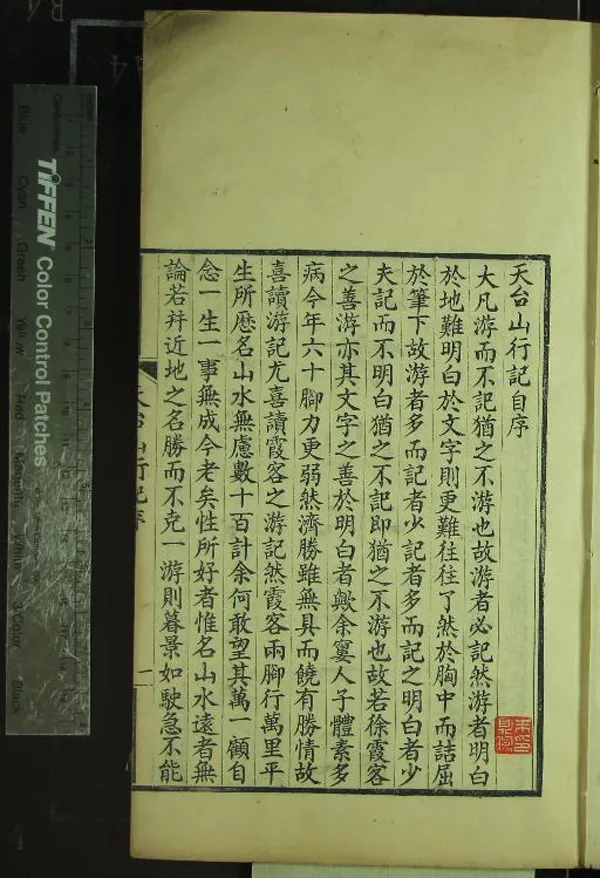 天台山行記自序
大凡游而不記猶之不游也故游者必記然游者明白
於地難明白於文字則更難往往了然於胸中而詰屈
於筆下故游者多而記者少記者多而記之明白者少
夫記而不明白猶之不記即猶之不游也故若徐霞客
之善游亦其文字之善於明白者歟余窶人子體素多
病今年六十腳力更弱然濟勝雖無具而饒有勝情故
喜讀游記尤喜讀霞客之游記然霞客兩腳行萬里平
生所歷名山水無慮數十百計余何敢望其萬一顧自
念一生一事無成今老矣性所好者惟名山水遠者無
論若幷近地之名勝而不克一游則暮景如駛急不能
天台山行記序
一
TIFFEN Color Control Patches
Blue
Cyan
Green
Yellow
Red
Magenta
White
3-Color
Black